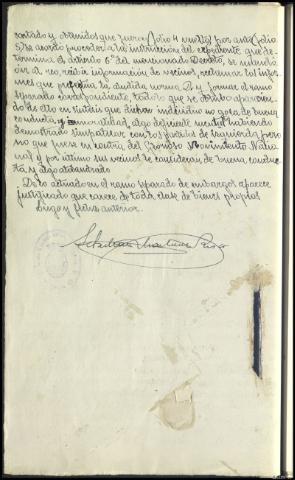 contado y obtenidos que fueron
Se acordó proceder a la instrucción del expediente que de-
termina el artículo 6º del mencionado Decreto, se mandó
oir al reo, recibir información de vecinos, reclamar los infor-
mes que y formar el ramo
separado correspondiente, todo lo que se obtuvo aparecien-
do de ello en síntesis que dicho individuo no goza de buena
conducta y moralidad, algo deficiente mental habiendo
demostrado simpatizar con los partidos de izquierda, pero
no que fuese en contra del Glorioso Movimiento Nacio-
nal y por último sus vecinos le consideran de buena conduc-
ta y algo
De lo actuado en el ramo separado de embargos aparece
justificado que carece de toda clase de bienes propios
Lugo y fecha anterior.